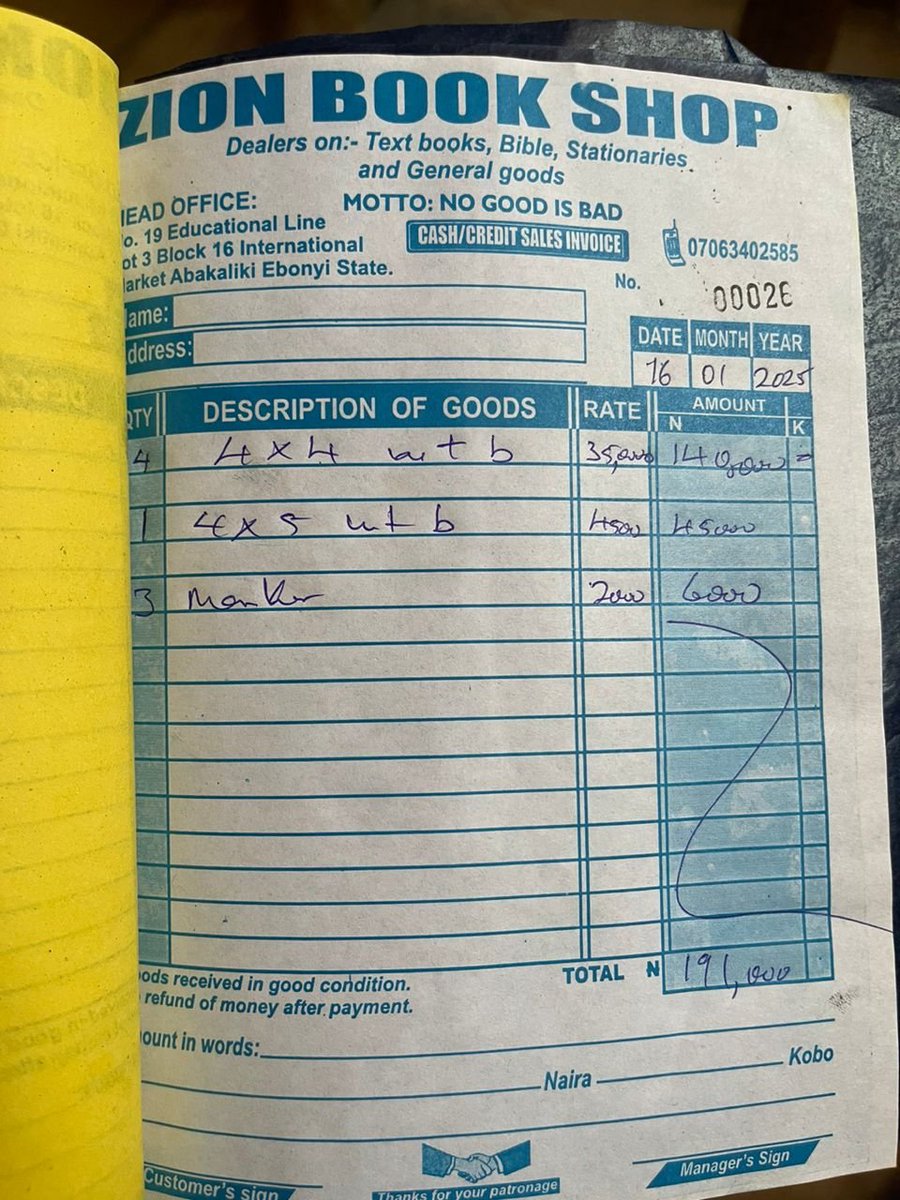 ZION BOOK SHOP
Dealers on:- Text books, Bible, Stationaries
and General goods
HEAD OFFICE: MOTTO: NO GOOD IS BAD
o. 19 Educational Line CASH/CREDIT SALES INVOICE 07063402585
ot 3 Block 16 International
arket Abakaliki Ebonyi State.
No. 00026
ame:
ddress:
DATE MONTH YEAR
16 01 2025
QTY DESCRIPTION OF GOODS RATE AMOUNT
N K
4 4x4 wtb 35,000 140,000=
1 4x5 wtb 4500 45000
3 Marker 2000 6000
ods received in good condition. TOTAL N 191,000
refund of money after payment.
ount in words:
Naira Kobo
Customer's sign Thanks for your patronage Manager's Sign